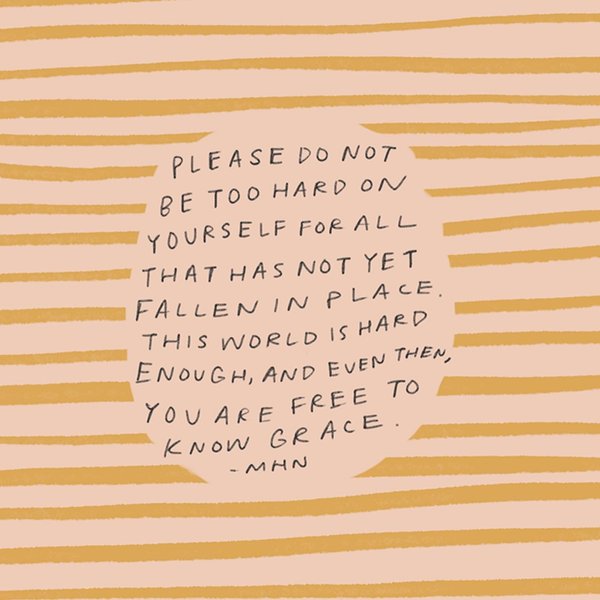 PLEASE DO NOT
BE TOO HARD ON
YOURSELF FOR ALL
THAT HAS NOT YET
FALLEN IN PLACE.
THIS WORLD IS HARD
ENOUGH, AND EVEN THEN,
YOU ARE FREE TO
KNOW GRACE.
-MHN